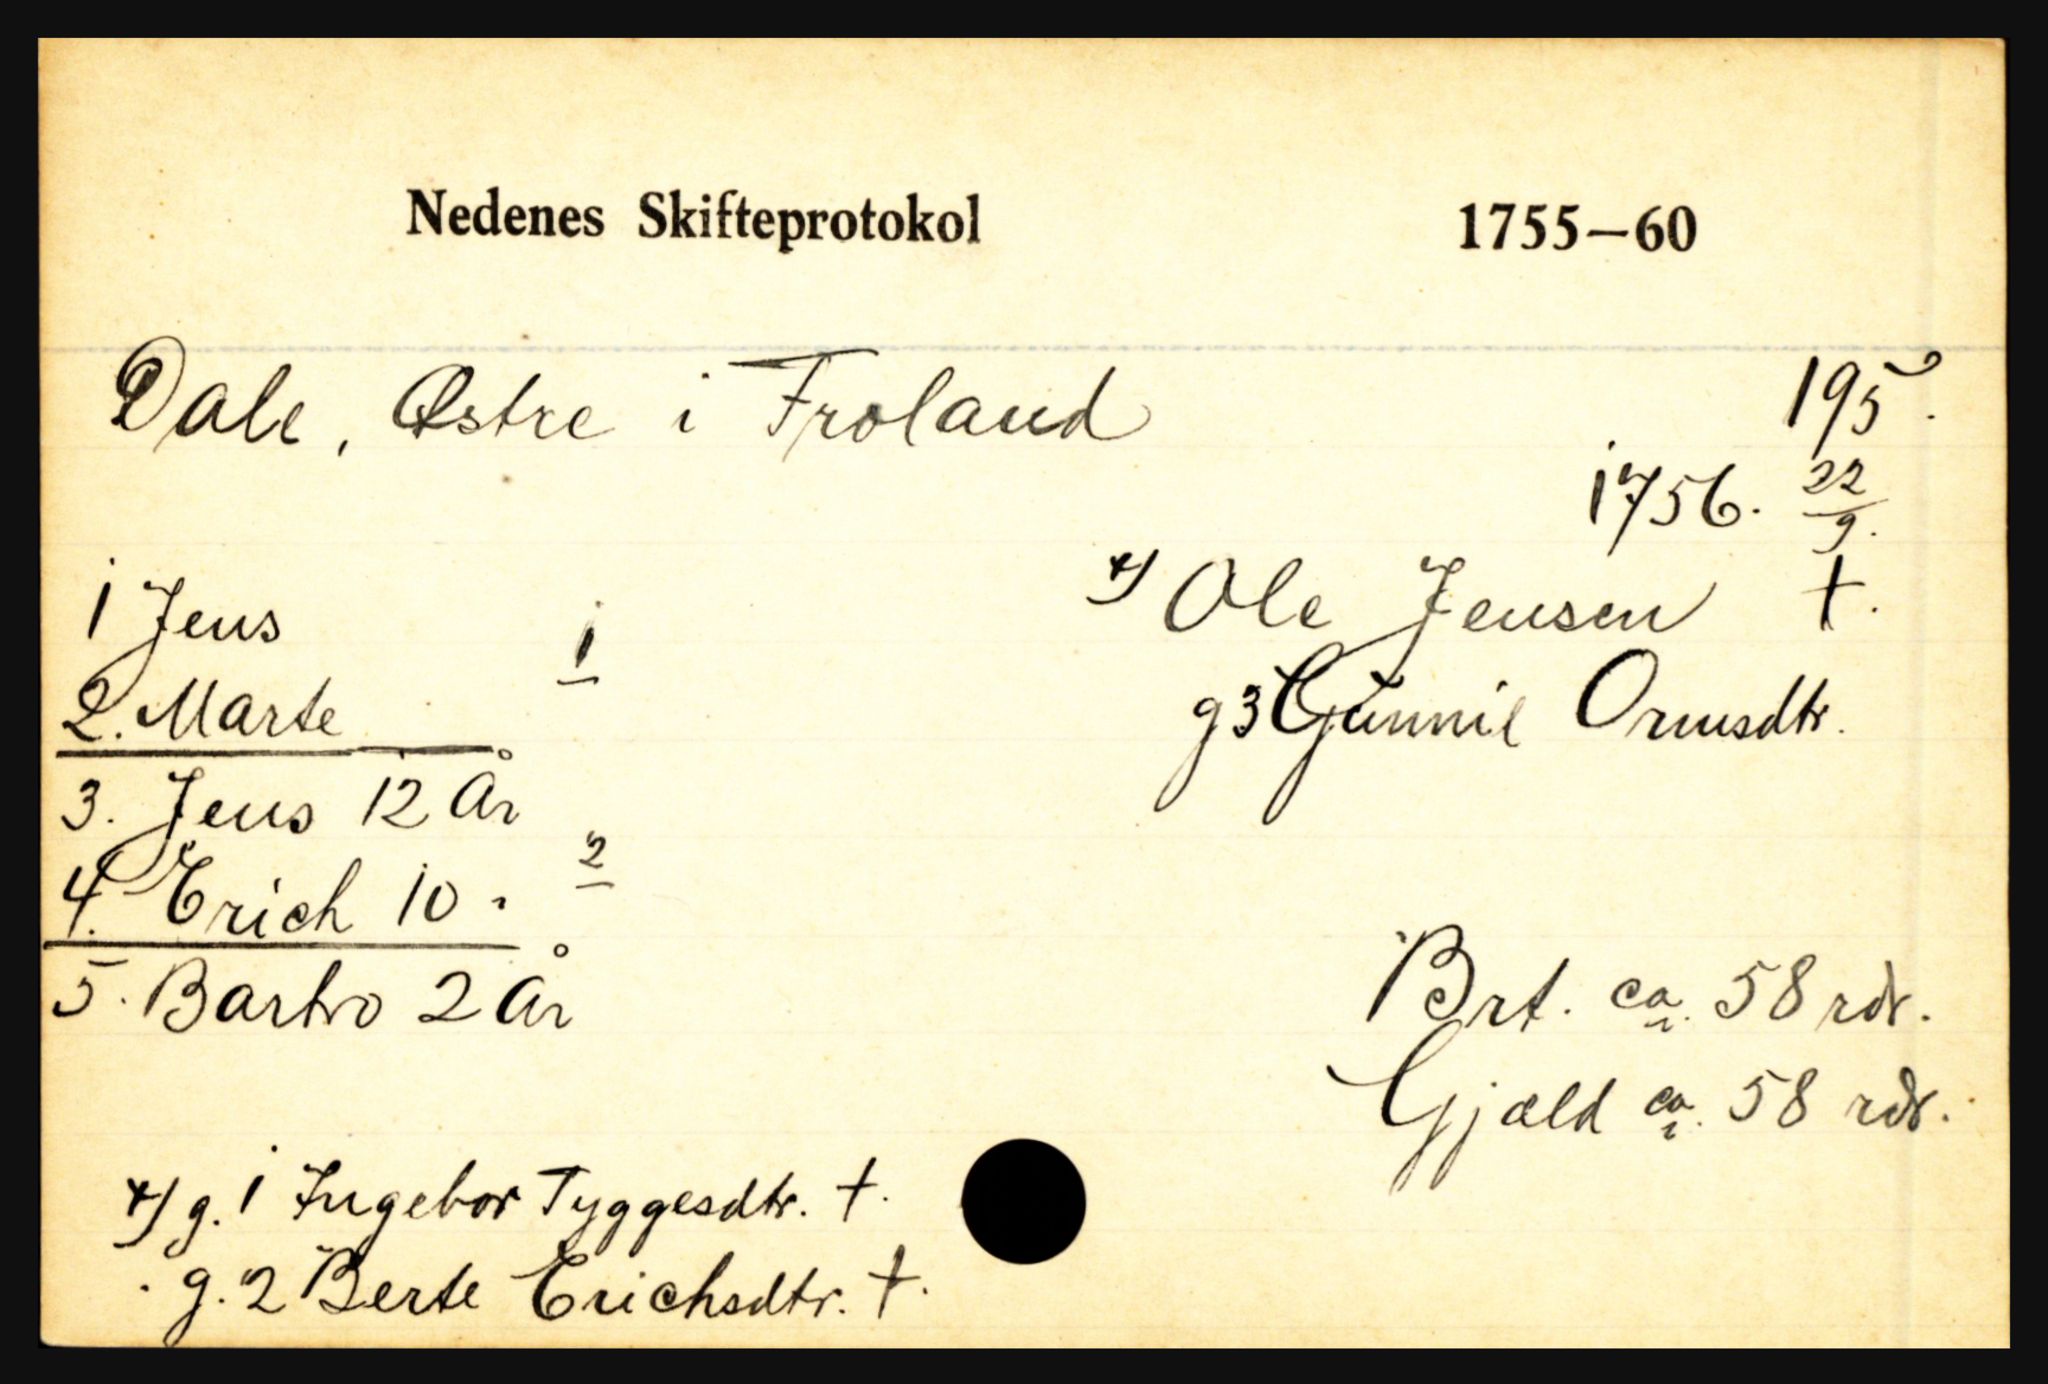 Nedenes Skifteprotokol 1755—60
Dale, Østre i Froland 195.
1756. 22/9.
*) Ole Jensen †.
g3 Gunnil Ormsdtr.
1 Jens
2. Marte 1
3. Jens 12 År
4. Erich 10 " 2
5. Barbro 2 År
Brt. ca. 58 rdr.
Gjæld ca. 58 rdr.
*) g. 1 Ingebor Tyggesdtr. †.
" g. 2 Berte Erichsdtr. †.